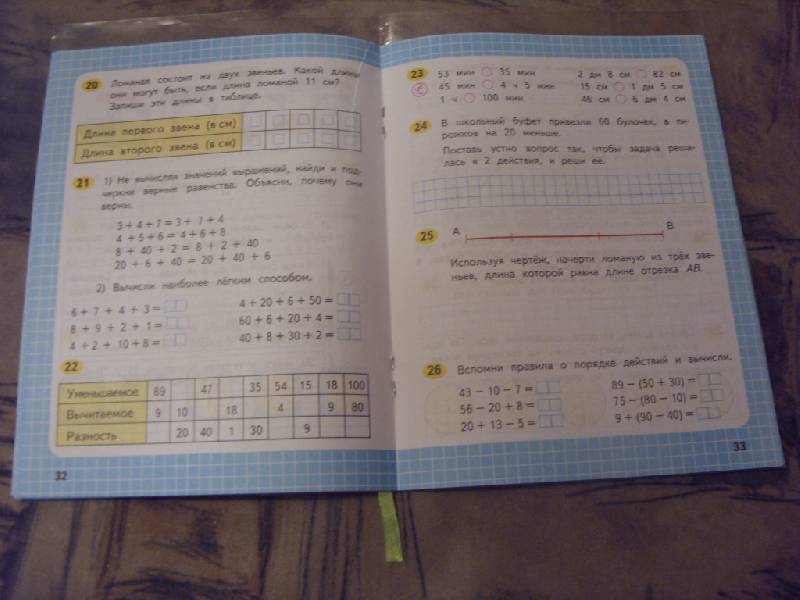 20 Ломаная состоит из двух звеньев. Какой длины
они могут быть, если длина ломаной 11 см?
Запиши эти длины в таблице.
Длина первого звена (в см)
Длина второго звена (в см)
21 1) Не вычисляя значений выражений, найди и под-
черкни верные равенства. Объясни, почему они
верны.
3 + 4 + 7 = 3 + 7 + 4
4 + 5 + 6 = 4 + 6 + 8
8 + 40 + 2 = 8 + 2 + 40
20 + 6 + 40 = 20 + 40 + 6
2) Вычисли наиболее лёгким способом.
6 + 7 + 4 + 3 =
8 + 9 + 2 + 1 =
4 + 2 + 10 + 8 =
4 + 20 + 6 + 50 =
60 + 6 + 20 + 4 =
40 + 8 + 30 + 2 =
22
Уменьшаемое 89 47 35 54 15 18 100
Вычитаемое 9 10 18 4 9 80
Разность 20 40 1 30 9
32
23 53 мин 35 мин 2 дм 8 см 82 см
45 мин 4 ч 5 мин 15 см 1 дм 5 см
1 ч 100 мин 46 см 6 дм 4 см
24 В школьный буфет привезли 60 булочек, а пи-
рожков на 20 меньше.
Поставь устно вопрос так, чтобы задача реша-
лась в 2 действия, и реши её.
25 А В
Используя чертёж, начерти ломаную из трёх зве-
ньев, длина которой равна длине отрезка АВ.
26 Вспомни правила о порядке действий и вычисли.
43 − 10 − 7 =
56 − 20 + 8 =
20 + 13 − 5 =
89 − (50 + 30) =
75 − (80 − 10) =
9 + (90 − 40) =
33